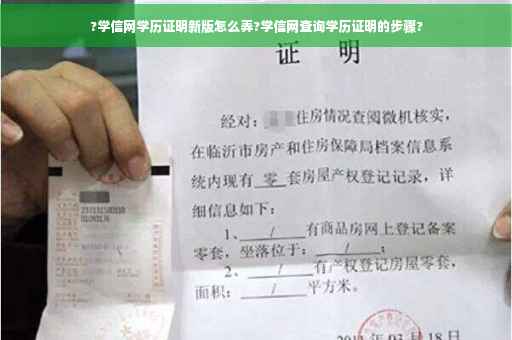 ?学信网学历证明新版怎么弄?学信网查询学历证明的步骤?
证 明
经对: 住房情况查阅微机核实,
在临沂市房产和住房保障局档案信息系
统内现有 零 套房屋产权登记记录,详
细信息如下:
1、 / 有商品房网上登记备案
零套,坐落位于: / ;
2、 / 有产权登记房屋零套,
面积: / 平方米。
03月18日